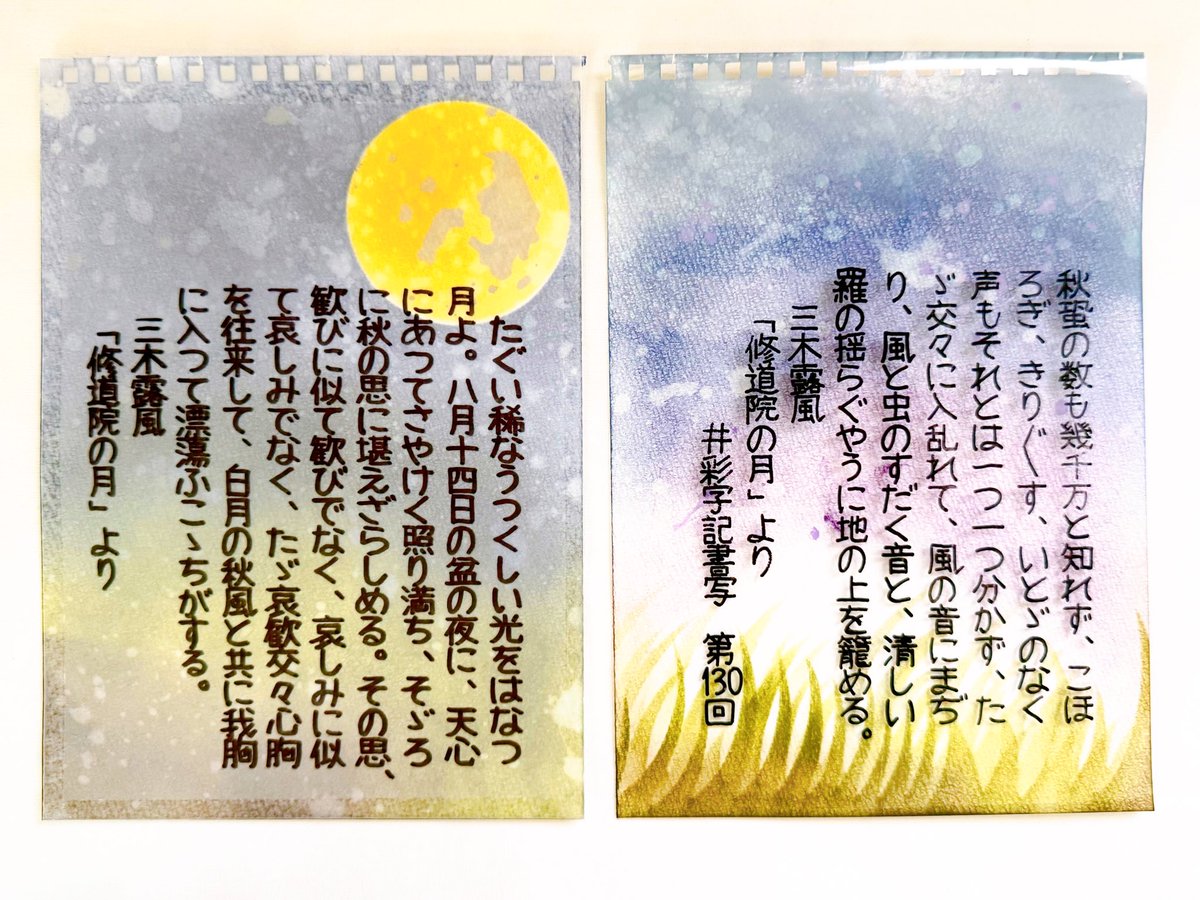 秋蛩の数も幾千万と知れず、こほ
ろぎ、きりぐす、いとゞのなく
声もそれとは一つ一つ分かず、た
ゞ交々に入乱れて、風の音にまぢ
り、風と虫のすだく音と、清しい
羅の揺らぐやうに地の上を籠める。
三木露風
「修道院の月」より
#彩字記書写 第130回
たぐい稀なうつくしい光をはなつ
月よ。八月十四日の盆の夜に、天心
にあつてさやけく照り満ち、そゞろ
に秋の思に堪えざらしめる。その思、
歓びに似て歓びでなく、哀しみに似
て哀しみでなく、たゞ哀歓交々心胸
を往来して、白月の秋風と共に我胸
に入つて漂蕩ふこゝちがする。
三木露風
「修道院の月」より